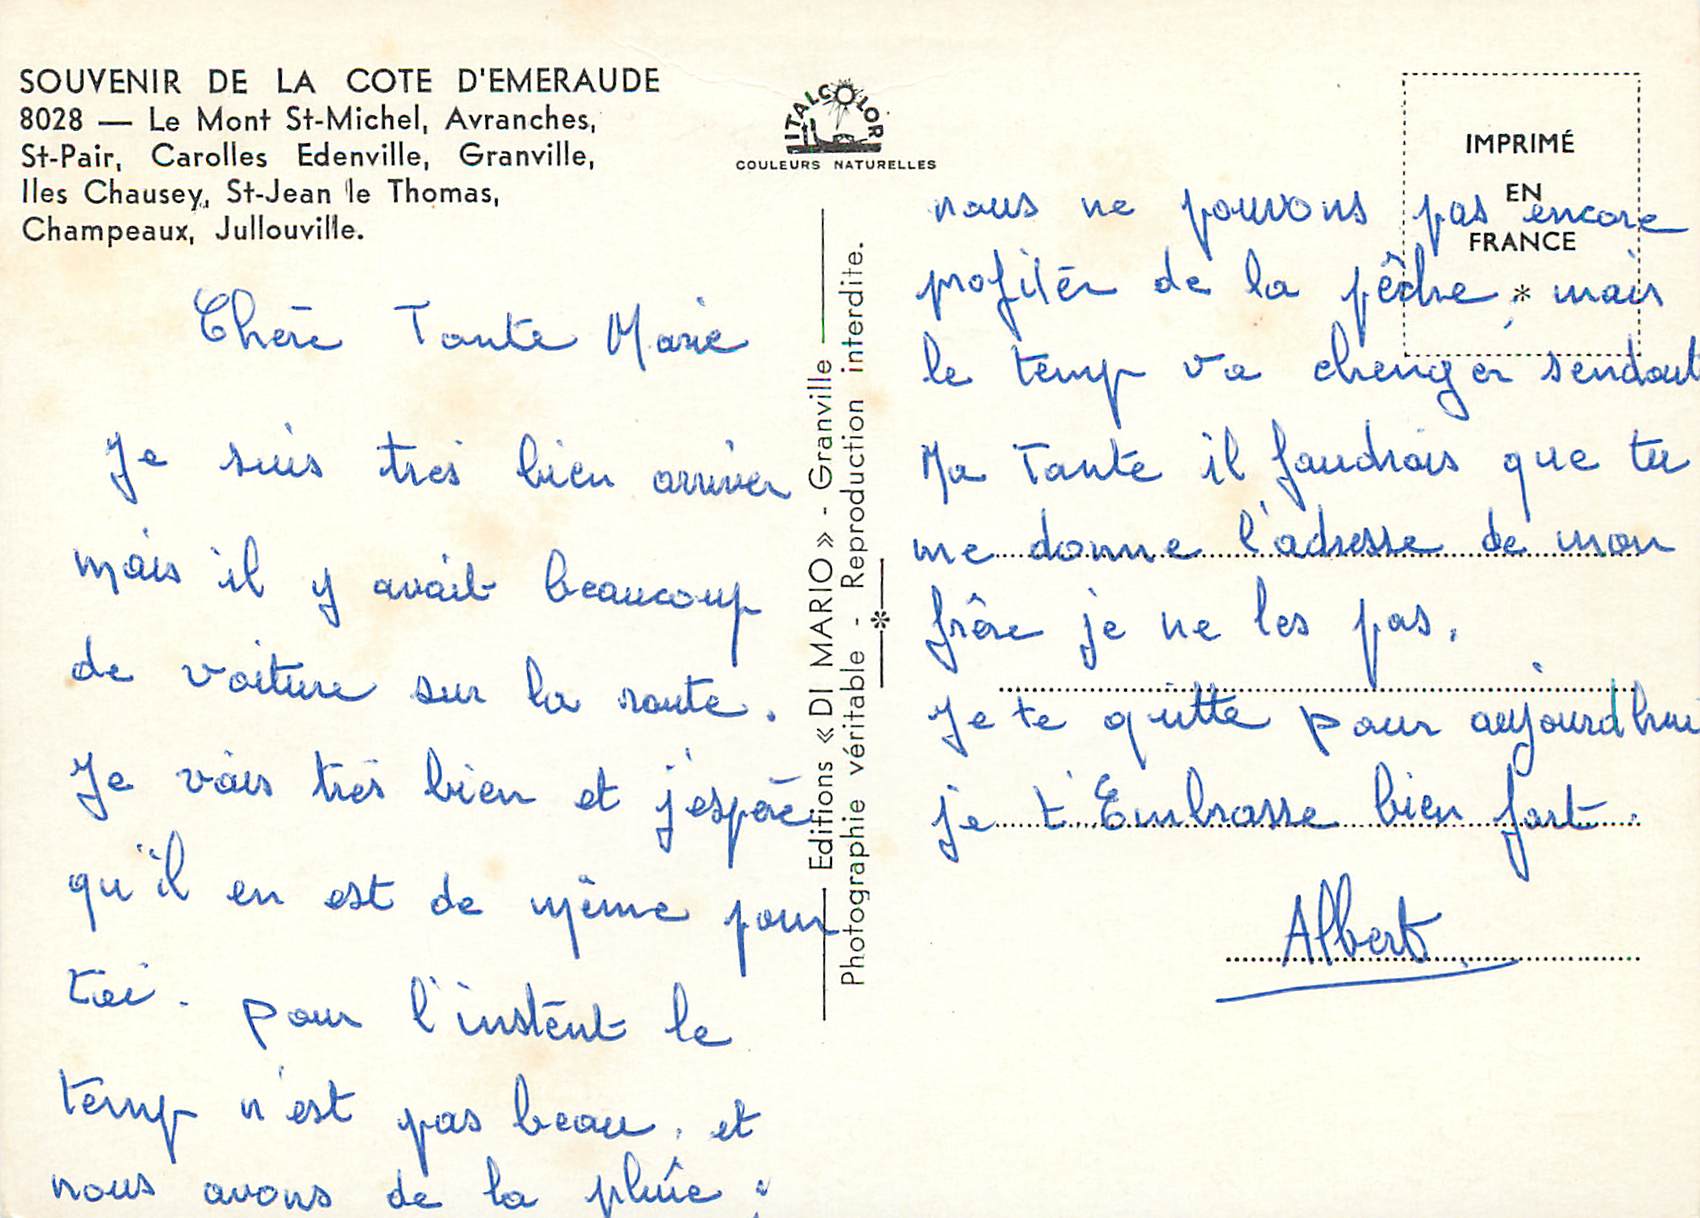 SOUVENIR DE LA COTE D'EMERAUDE
8028 — Le Mont St-Michel, Avranches,
St-Pair, Carolles Edenville, Granville,
Iles Chausey, St-Jean le Thomas,
Champeaux, Jullouville.
Chère Tante Marie
Je suis tres bien arriver
mais il y avait beaucoup
de voiture sur la route.
Je vais très bien et j'espère
qu'il en est de même pour
toi. pour l'instent le
temp n'est pas beau, et
nous avons de la pluie ;
ITALCOLOR
COULEURS NATURELLES
Editions « DI MARIO » - Granville
Photographie véritable - Reproduction interdite.
IMPRIMÉ
EN
FRANCE
*
nous ne pouvons pas encore
profiter de la pêche, mais
le temp va chenger sendout
Ma Tante il faudrais que tu
me donne l'adresse de mon
frère je ne les pas.
Je te quitte pour aujourdhui
je t'Embrasse bien fort.
Albert.